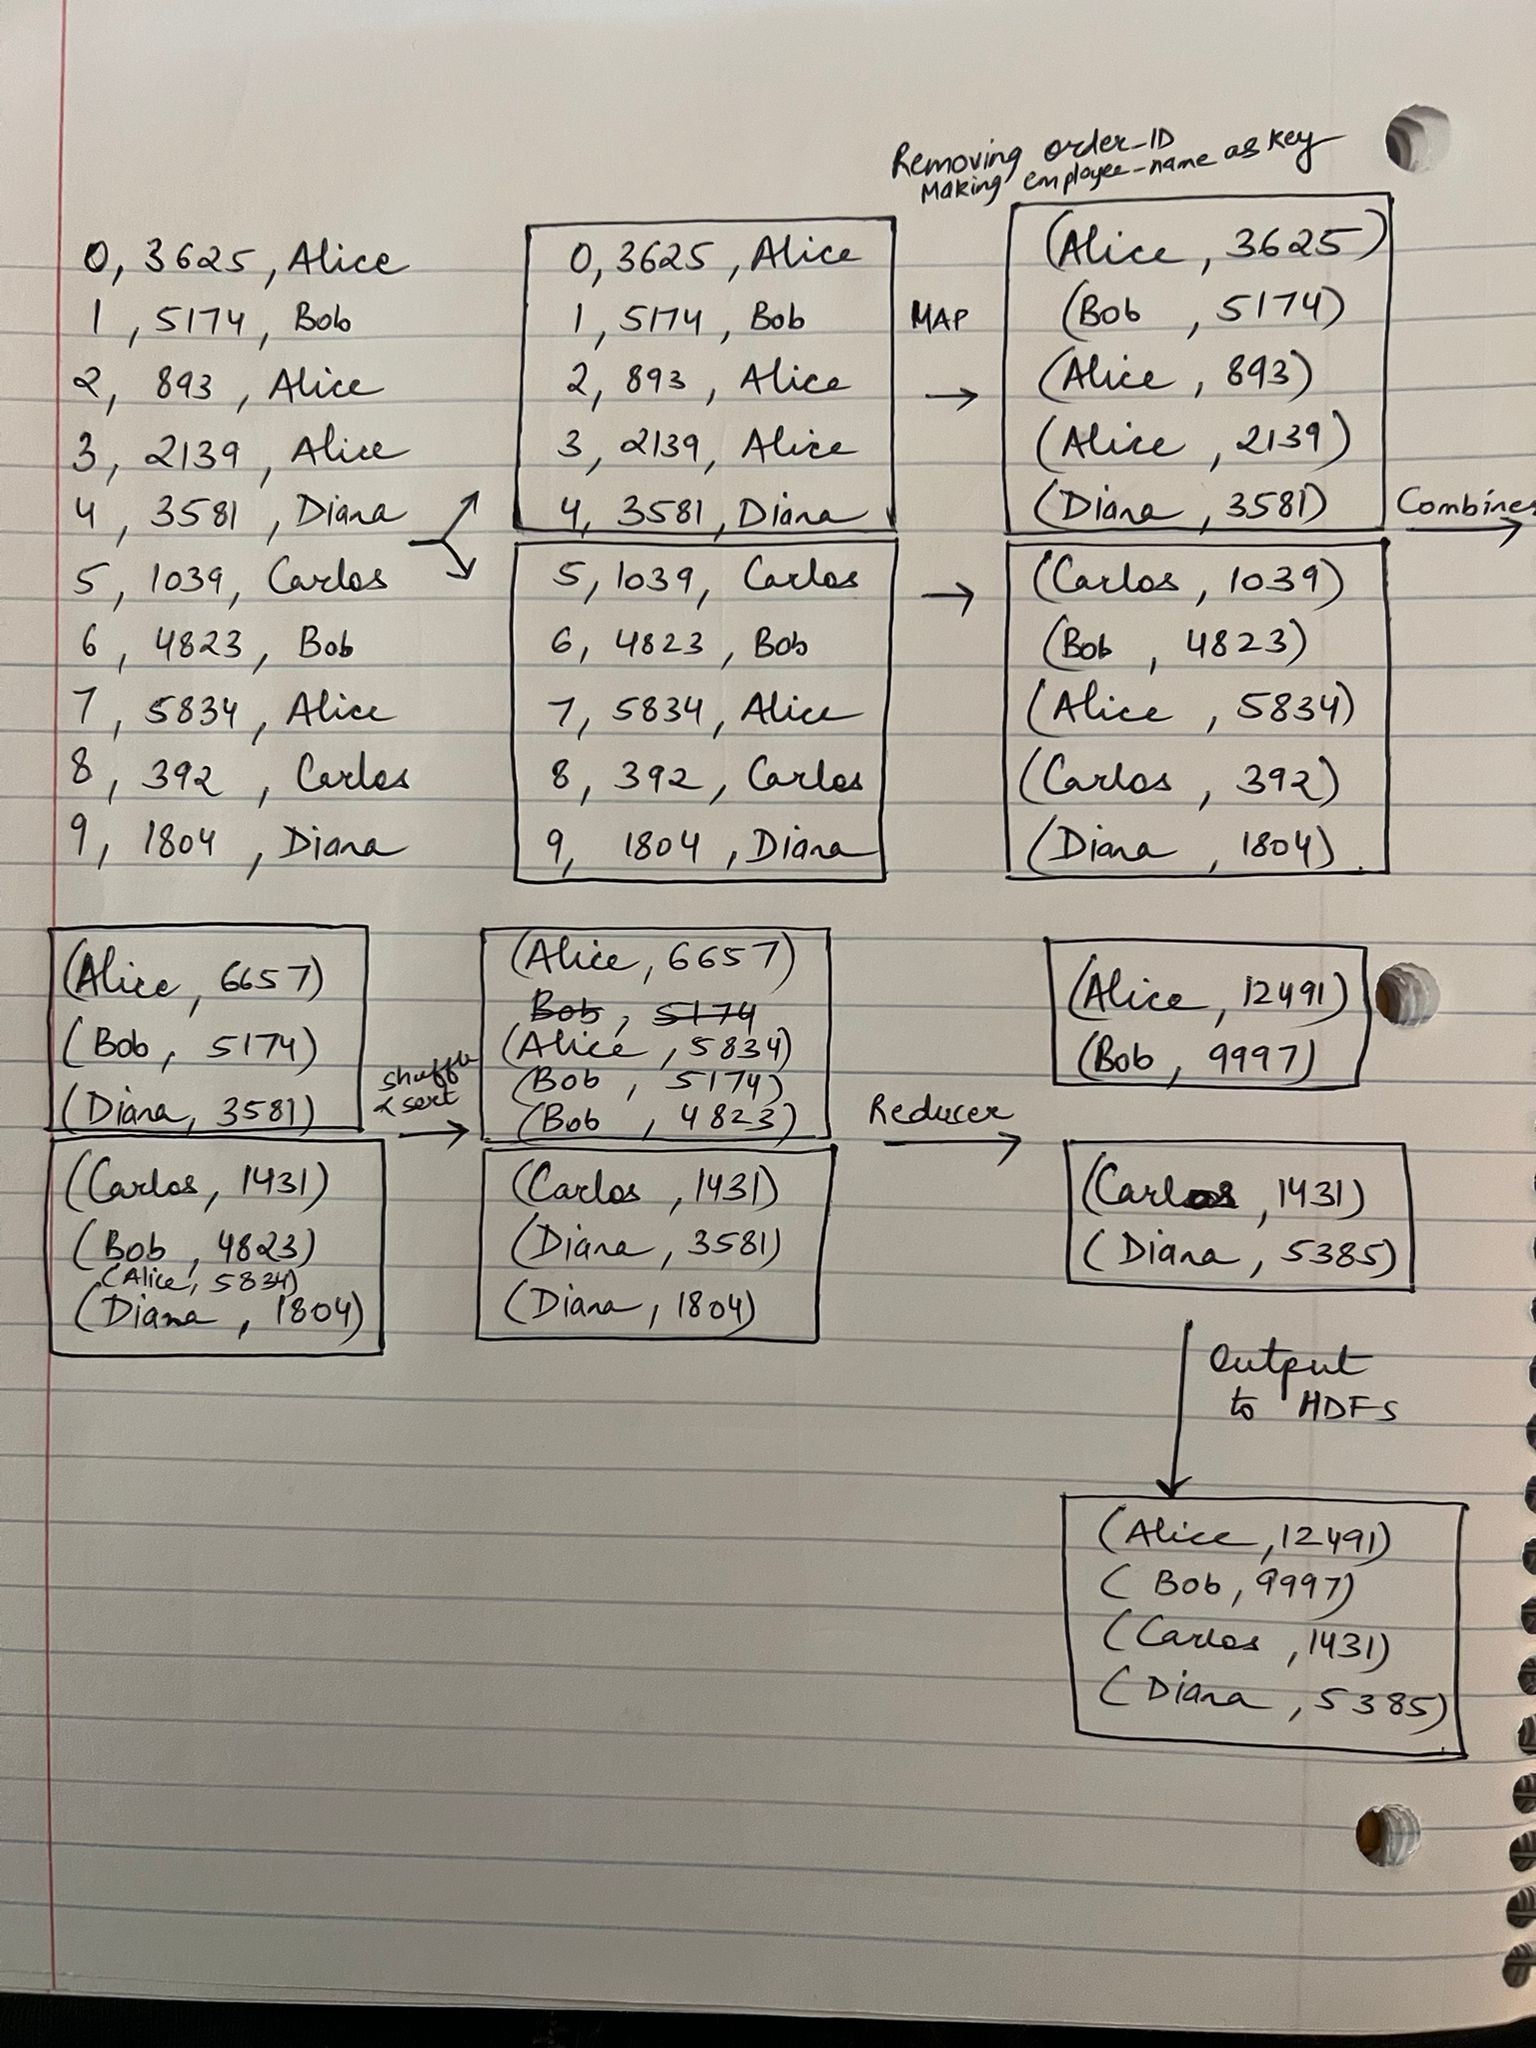 Removing order_ID
Making employee_name as key
0, 3625, Alice
1, 5174, Bob
2, 893, Alice
3, 2139, Alice
4, 3581, Diana
5, 1039, Carlos
6, 4823, Bob
7, 5834, Alice
8, 392, Carlos
9, 1804, Diana
0, 3625, Alice
1, 5174, Bob
2, 893, Alice
3, 2139, Alice
4, 3581, Diana
5, 1039, Carlos
6, 4823, Bob
7, 5834, Alice
8, 392, Carlos
9, 1804, Diana
MAP
(Alice, 3625)
(Bob, 5174)
(Alice, 893)
(Alice, 2139)
(Diana, 3581)
(Carlos, 1039)
(Bob, 4823)
(Alice, 5834)
(Carlos, 392)
(Diana, 1804)
Combiner
(Alice, 6657)
(Bob, 5174)
(Diana, 3581)
(Carlos, 1431)
(Bob, 4823)
(Alice, 5834)
(Diana, 1804)
shuffle
& sort
(Alice, 6657)
Bob, 5174
(Alice, 5834)
(Bob, 5174)
(Bob, 4823)
(Carlos, 1431)
(Diana, 3581)
(Diana, 1804)
Reducer
(Alice, 12491)
(Bob, 9997)
(Carlos, 1431)
(Diana, 5385)
Output
to HDFS
(Alice, 12491)
(Bob, 9997)
(Carlos, 1431)
(Diana, 5385)